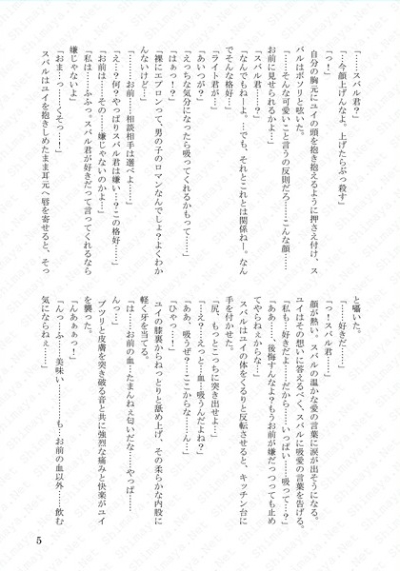 「……スバル君？」
「っ！　今顔上げんなよ。上げたらぶっ殺す」
自分の胸元にユイの頭を抱き抱えるように押さえ付け、ス
バルはボソリと呟いた。
「……そんな可愛いこと言うの反則だろ……こんな顔……
お前に見せられるかよ…」
「スバル君……？」
「なんでもねーよ。…でも、それとこれとは関係ねー。なん
でそんな格好…」
「ライト君が…」
「あいつが？」
「えっちな気分になったら吸ってくれるかもって……」
「はぁっ！？」
「裸にエプロンって、男の子のロマンなんでしょ？よくわか
んないけど…」
「……お前…相談相手は選べよ……」
「え？何？やっぱりスバル君は嫌い…？この格好……」
「お前は……その……嫌じゃないのかよ…」
「私は……ふふっ。スバル君が好きだって言ってくれるなら
嫌じゃないよ」
「おま…っ……くそっ…！」
スバルはユイを抱きしめたまま耳元へ唇を寄せると、そっ
と囁いた。
「……好きだ……」
「っ！スバル君……」
顔が熱い。スバルの温かな愛の言葉に涙が出そうになる。
ユイはその想いに答えるべく、スバルに吸愛の言葉を告げる。
「私も…好きだよ…だから……いっぱい……吸って…？」
「ああ…、後悔すんなよ？もうお前が嫌だっつっても止め
てやらねぇからな…」
スバルはユイの体をくるりと反転させると、キッチン台に
手を付かせた。
「尻、もっとこっちに突き出せよ…」
「…え？…えっと…血…吸うんだよね？」
「ああ、吸うぜ？ここからな……ん…」
「ひゃっ…！」
ユイの膝裏からねっとりと舐め上げ、その柔らかな内股に
軽く牙を当てる。
「は……お前の血…たまんねぇ匂いだな……やっぱ……
んっ…」
ブツリと皮膚を突き破る音と共に強烈な痛みと快楽がユイ
を襲った。
「んあぁぁっ！」
「んっ…ふ……美味い……も……お前の血以外……飲む
気にならねぇ……」
5